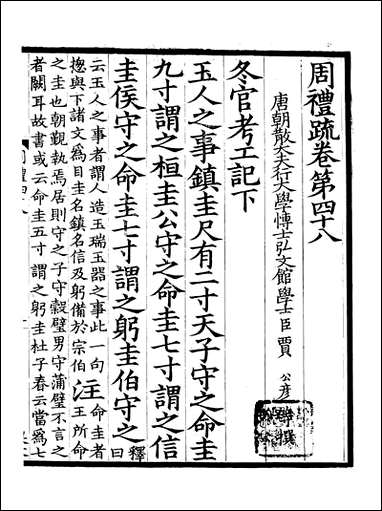 周禮疏卷第四十八
唐朝散大夫行大學博士弘文館學士臣賈公彥等撰
冬官考工記下
玉人之事鎮圭尺有二寸天子守之命圭
九寸謂之桓圭公守之命圭七寸謂之信
圭侯守之命圭七寸謂之躬圭伯守之釋曰
云玉人之事者謂人造玉瑞玉器之事此一句
摠與下諸文為目圭名鎮名信及躬備於宗伯注命圭者
王所命之圭也朝覲執焉居則守之子守穀璧男守蒲璧不言之
者闕耳故書或云命圭五寸謂之躬圭杜子春云當為七